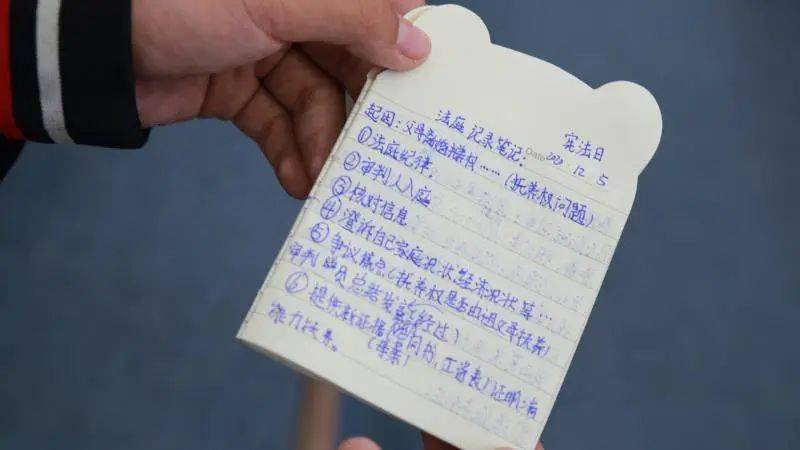 宪法日
法庭记录笔记: Date 20 12 5
起因:父母离婚……(抚养权问题)
①法庭纪律,
②审判人入庭
③核对信息
④澄诉自己家庭况状经济况状等…
⑤争议焦点(抚养权是否由祖父母抚养)
审判 员总结发 经过)
⑥提供新证据 同书,工资表)证明:有
能力扶养。